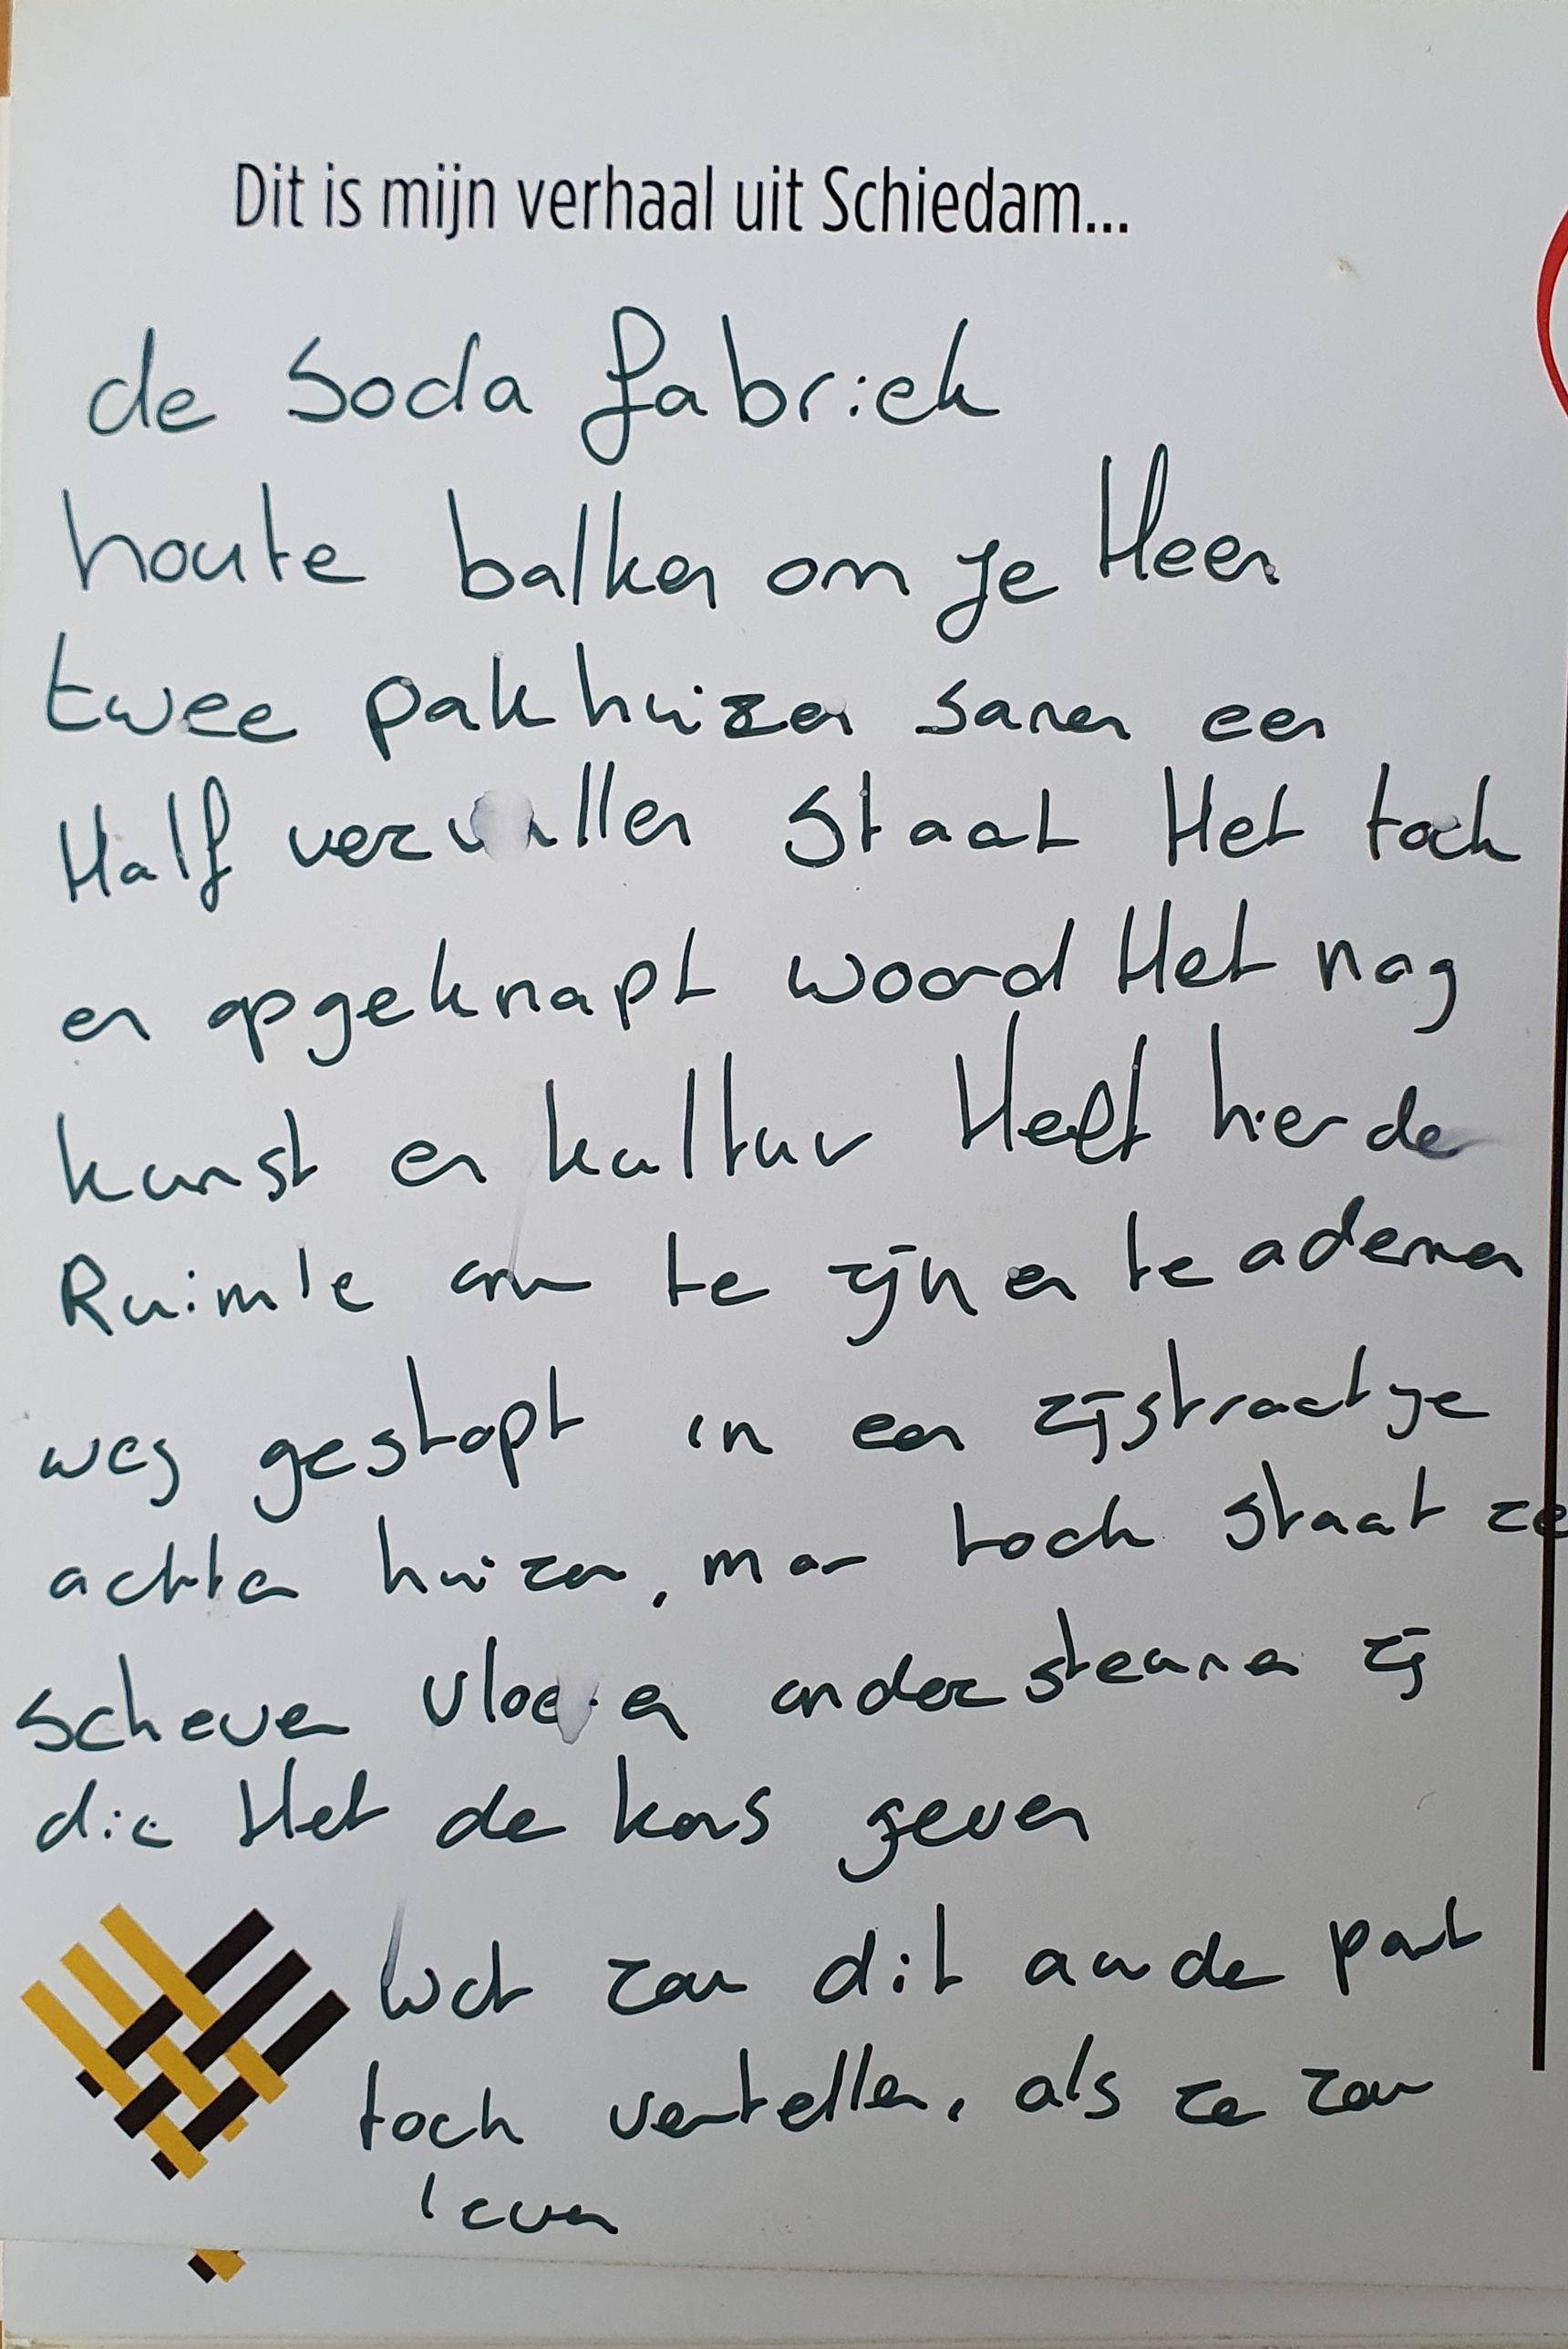 Dit is mijn verhaal uit Schiedam...
de soda fabriek
houte balken om je Heen
twee pakhuizen samen een
Half vervallen staat Het toch
en opgeknapt woord Het nog
kunst en kultuur Heeft hier de
Ruimte om te zijn en te ademen
weg gestopt in een zijstraatje
achter huizen, maar toch staat ze
scheven vloeren ondersteunen zij
die Het de kans geven
wat zou dit oude pand
toch vertellen, als ze zou
leven